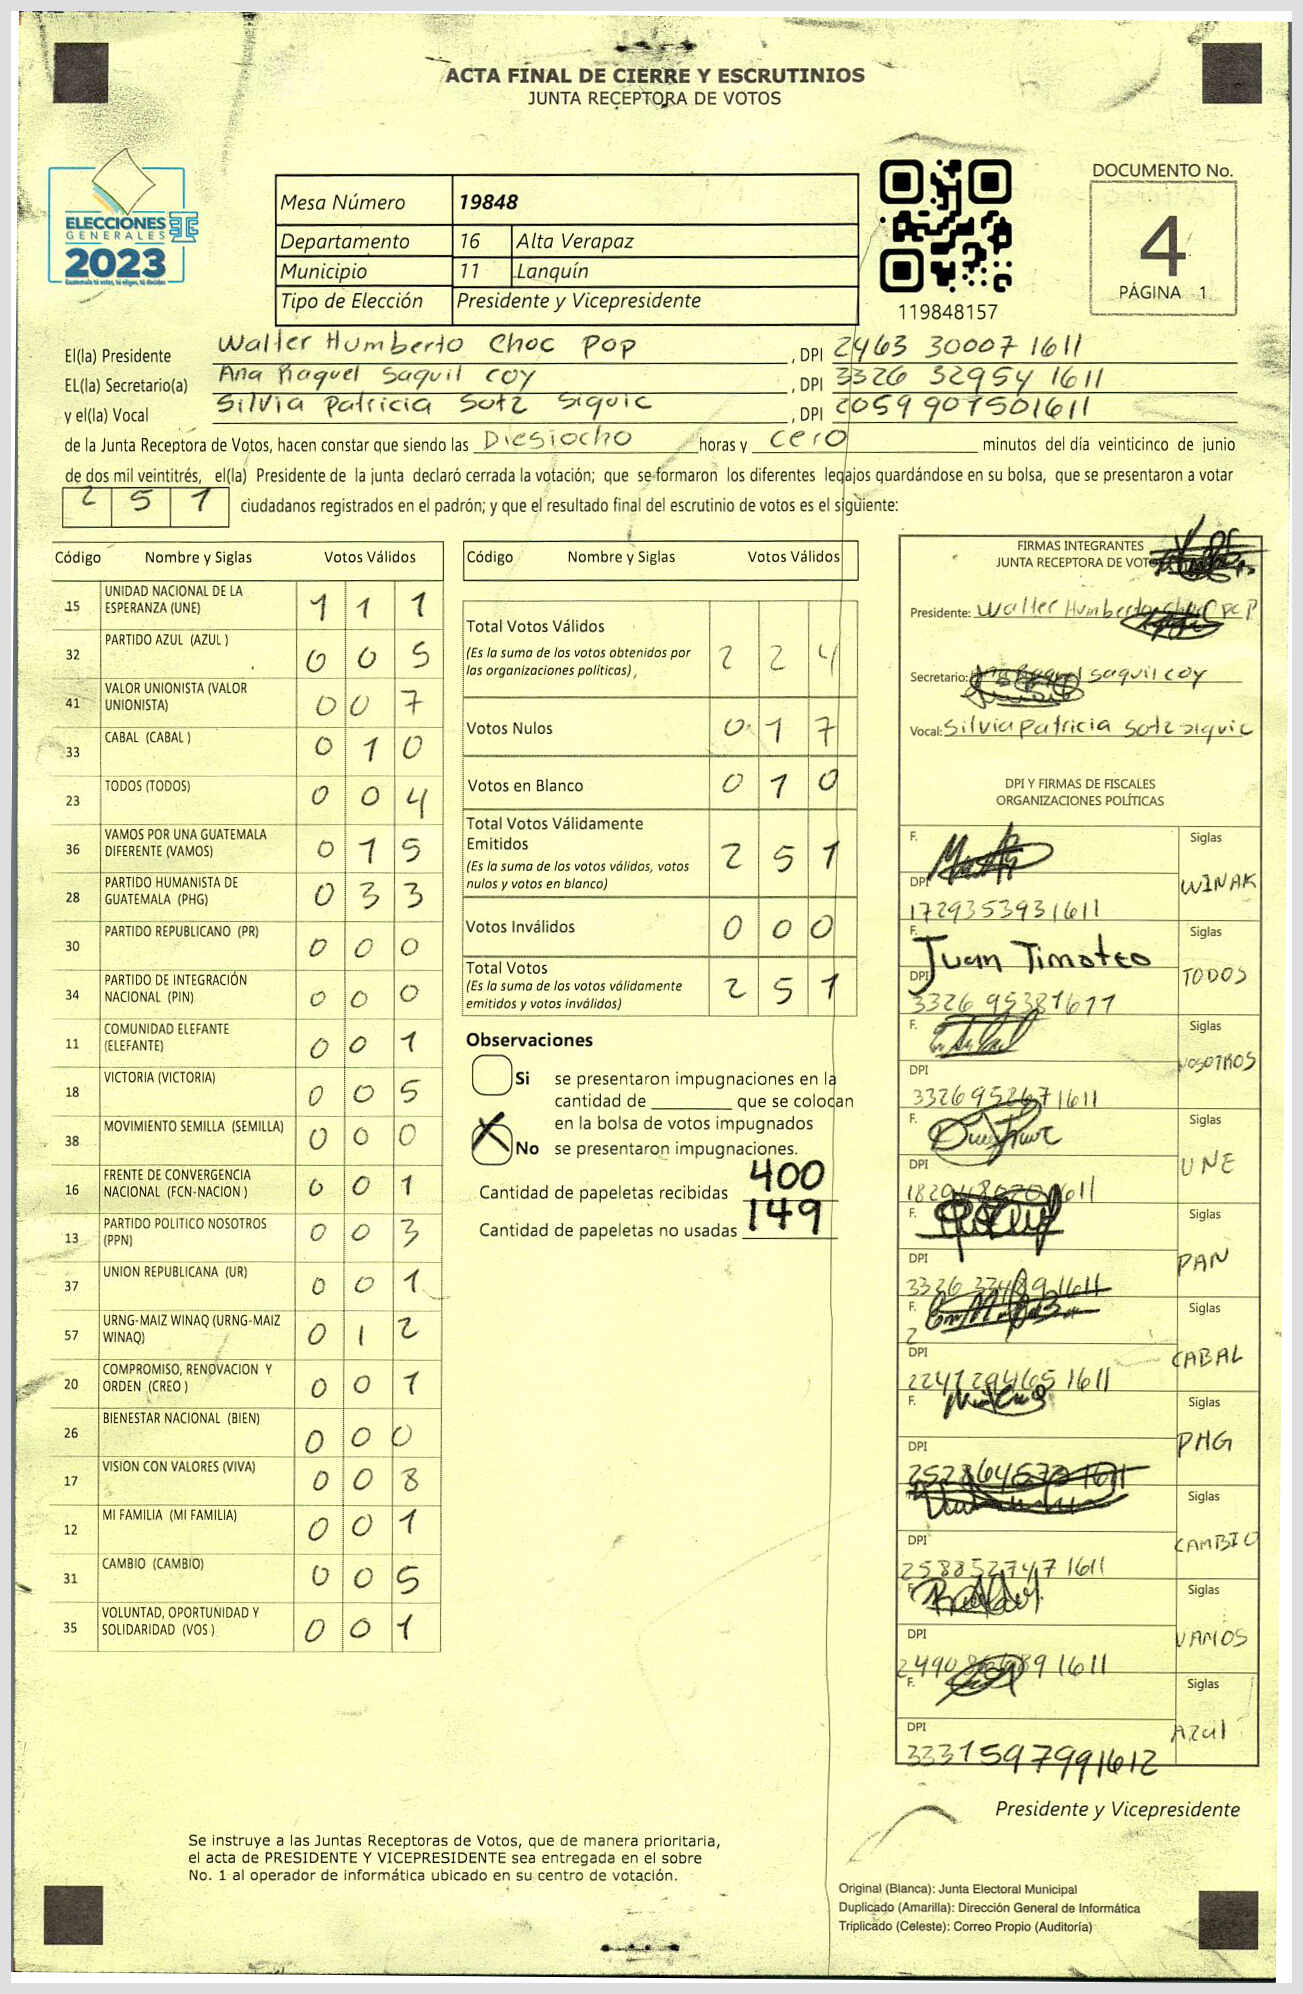 ACTA FINAL DE CIERRE Y ESCRUTINIOS
JUNTA RECEPTORA DE VOTOS
ELECCIONES
GENERALES
2023
Guatemala tú votas, tú eliges, tú decides
Mesa Número 19848
Departamento 16 Alta Verapaz
Municipio 11 Lanquín
Tipo de Elección Presidente y Vicepresidente
119848157
DOCUMENTO No.
4
PÁGINA 1
El(la) Presidente Walter Humberto Choc Pop , DPI 2463 30007 1611
EL(la) Secretario(a) Ana Raquel Saquil Coy , DPI 3326 32954 1611
y el(la) Vocal Silvia Patricia Sotz Siquic , DPI 2059 90750 1611
de la Junta Receptora de Votos, hacen constar que siendo las Diesiocho horas y cero minutos del día veinticinco de junio
de dos mil veintitrés, el(la) Presidente de la junta declaró cerrada la votación; que se formaron los diferentes legajos guardándose en su bolsa, que se presentaron a votar
2 5 1 ciudadanos registrados en el padrón; y que el resultado final del escrutinio de votos es el siguiente:
Código Nombre y Siglas Votos Válidos
15 UNIDAD NACIONAL DE LA ESPERANZA (UNE) 1 1 1
32 PARTIDO AZUL (AZUL ) 0 0 5
41 VALOR UNIONISTA (VALOR UNIONISTA) 0 0 7
33 CABAL (CABAL ) 0 1 0
23 TODOS (TODOS) 0 0 4
36 VAMOS POR UNA GUATEMALA DIFERENTE (VAMOS) 0 1 5
28 PARTIDO HUMANISTA DE GUATEMALA (PHG) 0 3 3
30 PARTIDO REPUBLICANO (PR) 0 0 0
34 PARTIDO DE INTEGRACIÓN NACIONAL (PIN) 0 0 0
11 COMUNIDAD ELEFANTE (ELEFANTE) 0 0 1
18 VICTORIA (VICTORIA) 0 0 5
38 MOVIMIENTO SEMILLA (SEMILLA) 0 0 0
16 FRENTE DE CONVERGENCIA NACIONAL (FCN-NACION ) 0 0 1
13 PARTIDO POLITICO NOSOTROS (PPN) 0 0 3
37 UNION REPUBLICANA (UR) 0 0 1
57 URNG-MAIZ WINAQ (URNG-MAIZ WINAQ) 0 1 2
20 COMPROMISO, RENOVACION Y ORDEN (CREO ) 0 0 1
26 BIENESTAR NACIONAL (BIEN) 0 0 0
17 VISION CON VALORES (VIVA) 0 0 8
12 MI FAMILIA (MI FAMILIA) 0 0 1
31 CAMBIO (CAMBIO) 0 0 5
35 VOLUNTAD, OPORTUNIDAD Y SOLIDARIDAD (VOS ) 0 0 1
Código Nombre y Siglas Votos Válidos
Total Votos Válidos 2 2 4
(Es la suma de los votos obtenidos por
las organizaciones políticas)
Votos Nulos 0 1 7
Votos en Blanco 0 1 0
Total Votos Válidamente
Emitidos 2 5 1
(Es la suma de los votos válidos, votos
nulos y votos en blanco)
Votos Inválidos 0 0 0
Total Votos 2 5 1
(Es la suma de los votos válidamente
emitidos y votos inválidos)
Observaciones
Si se presentaron impugnaciones en la
cantidad de ________ que se colocan
en la bolsa de votos impugnados
X No se presentaron impugnaciones.
Cantidad de papeletas recibidas 400
Cantidad de papeletas no usadas 149
FIRMAS INTEGRANTES
JUNTA RECEPTORA DE VOTOS
Presidente: Walter Humberto Choc Pop
Secretario: Ana Raquel Saquil Coy
Vocal: Silvia Patricia Sotz Siquic
DPI Y FIRMAS DE FISCALES
ORGANIZACIONES POLÍTICAS
F. Siglas
DPI WINAK
1729353931611
F. Juan Timoteo Siglas
DPI TODOS
3326 95381611
F. Siglas
DPI NOSOTROS
3326952671611
F. Siglas
DPI UNE
F. Siglas
DPI PAN
F. Siglas
DPI CABAL
2247294651611
F. Siglas
DPI PHG
Siglas
DPI CAMBIO
2588527471611
F. Siglas
DPI VAMOS
F. Siglas
DPI Azul
3331597991612
Presidente y Vicepresidente
Se instruye a las Juntas Receptoras de Votos, que de manera prioritaria,
el acta de PRESIDENTE Y VICEPRESIDENTE sea entregada en el sobre
No. 1 al operador de informática ubicado en su centro de votación.
Original (Blanca): Junta Electoral Municipal
Duplicado (Amarilla): Dirección General de Informática
Triplicado (Celeste): Correo Propio (Auditoría)